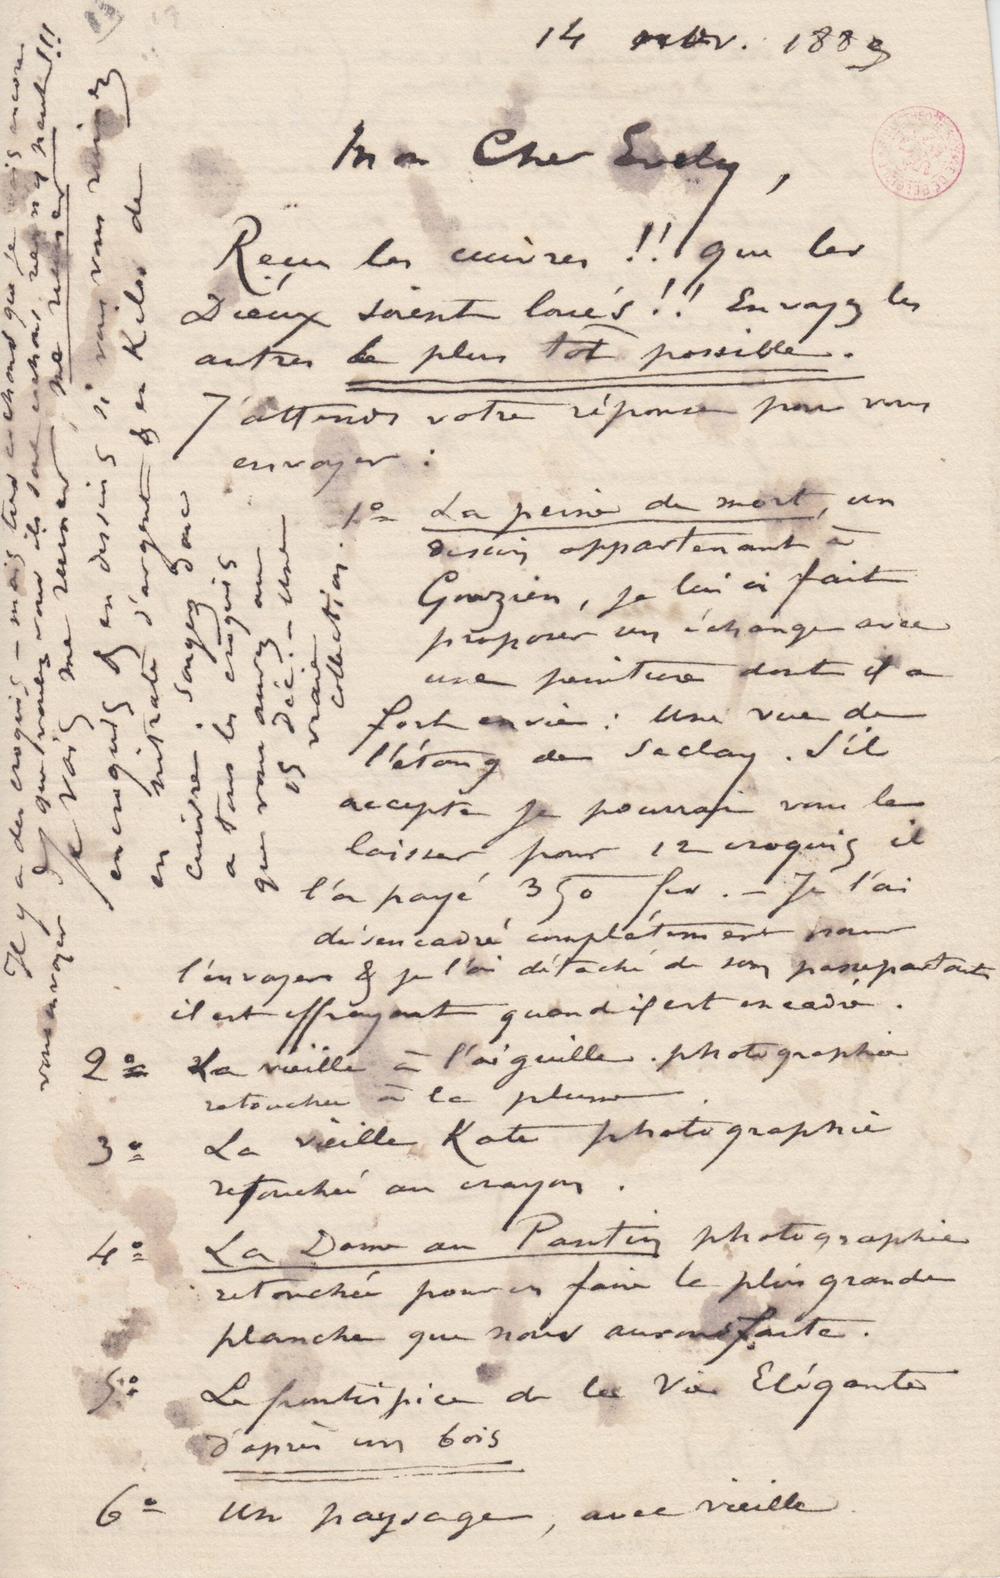 14 nov. 1883
Mon Cher Evely,
Reçu les cuivres !! que les
Dieux soient loués !! Envoyez les
autres le plus tôt possible.
J'attends votre réponse pour vous
envoyer :
1º La peine de mort, un
dessin appartenant à
Gouzien, je lui ai fait
proposer un échange avec
une peinture dont il a
fort envie : Une vue de
l'étang de Saclay. S'il
accepte je pourrai vous le
laisser pour 12 croquis il
l'a payé 350 frs. – Je l'ai
désencadré complètement pour
l'envoyer & je l'ai détaché de son passepartout
il est effrayant quand il est encadré.
2º La vieille à l'aiguille. photographie
retouchée à la plume.
3º La vieille Kate photographie
retouchée au crayon.
4º La Dame au Pantin photographie
retouchée pour en faire la plus grande
planche que nous aurons faite.
5º Le frontispice de la Vie Elégante
d'après un bois
6º Un paysage, avec vieille
Il y a des croquis – mais très cochons que je vais encore
vous envoyer si vous voulez ils sont cochons rien n'y manque !!!
Je vais me ruiner, me ruiner
en croquis & en dessins si vous vous ruinez
en nitrate d'argent & en Kilos de
cuivre. Songez donc
à tous les croquis
que vous aurez au
15 Déc. – Une
vraie
collection.